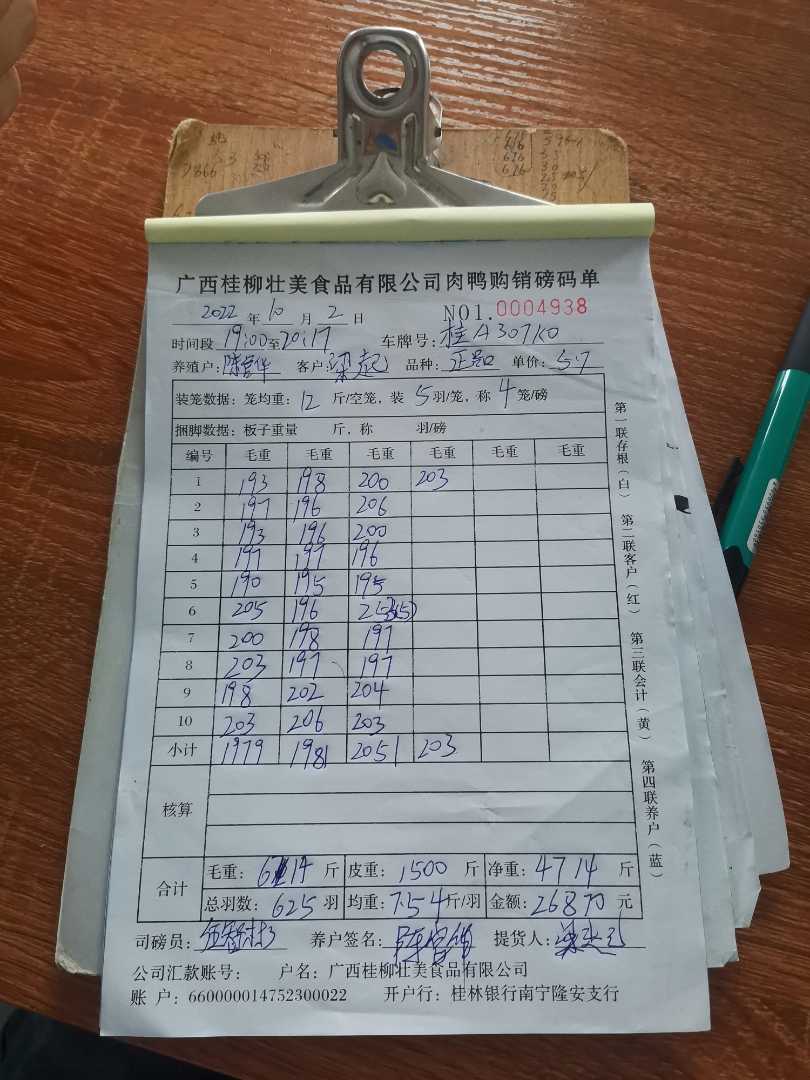 广西桂柳壮美食品有限公司肉鸭购销磅码单
2022 年 10 月 2 日 NO1.0004938
时间段 19:00至20:17 车牌号:桂A307K0
养殖户: 客户: 品种: 单价:5.7
装笼数据:笼均重:12 斤/空笼,装 5 羽/笼,称 4 笼/磅
捆脚数据:板子重量 斤,称 羽/磅
编号 毛重 毛重 毛重 毛重 毛重 毛重
1 193 198 200 203
2 197 196 206
3 193 196 200
4 197 197 196
5 190 195 195
6 205 196
7 200 198 197
8 203 197 197
9 198 202 204
10 203 206 203
小计 1979 1981 2051 203
核算
合计 毛重: 斤 皮重:1500 斤 净重:4714 斤
总羽数:625 羽 均重:7.54 斤/羽 金额:26870 元
司磅员: 养户签名: 提货人:
公司汇款账号: 户名:广西桂柳壮美食品有限公司
账 户:660000014752300022 开户行:桂林银行南宁隆安支行
第一联存根(白) 第二联客户(红) 第三联会计(黄) 第四联养户(蓝)